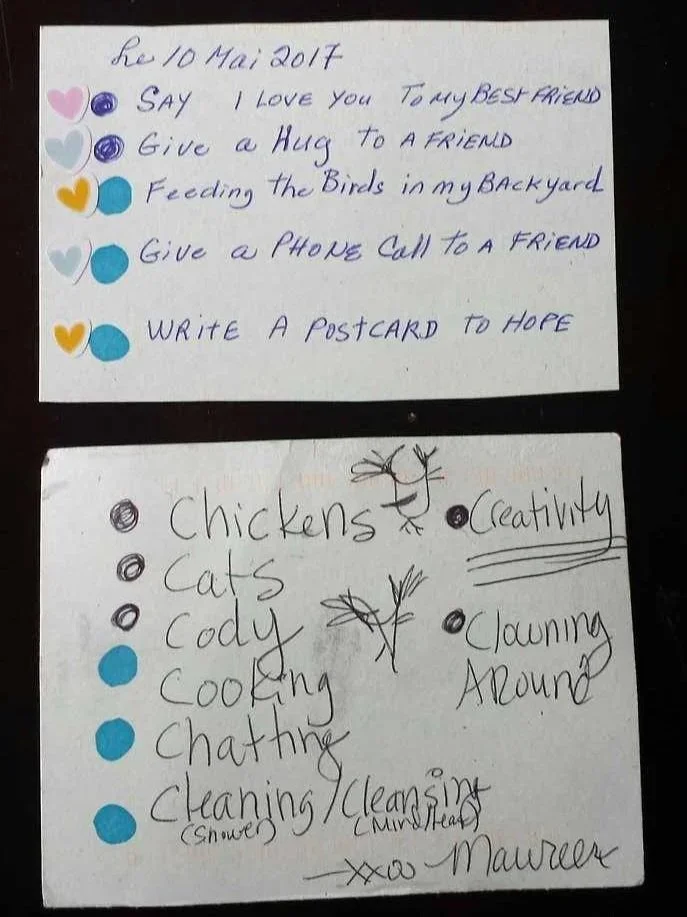 Le 10 Mai 2017
SAY I LOVE YOU To My BEST FRIEND
Give a Hug To A FRIEND
Feeding the Birds in my BACkyard
Give a PHONE Call To A FRIEND
WRITE A POSTCARD TO HOPE
Chickens
Cats
Cody
Cooking
Chatting
Cleaning / Cleansing
(Shower) (Mind/Heart)
Creativity
Clowning
Around
—xxoo Maureen